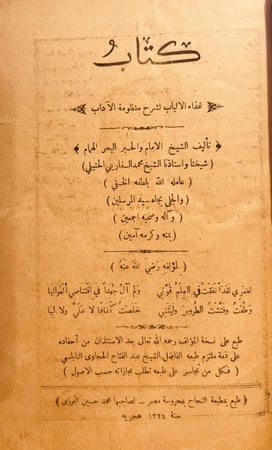 كتاب
غذاء الالباب لشرح منظومة الآداب
﴿ تأليف الشيخ الامام والحبر البحر الهمام ﴾
( شيخنا واستاذنا الشيخ محمد السفاريني الحنبلي )
( عامله الله بلطفه الخفي )
( والجلي بجاه سيد المرسلين )
( وآله وصحبه اجمعين )
( بمنه وكرمه آمين )
( لمؤلفه رضي الله عنه )
لعمري لقد انفقت في العلم قوتي ولم آل جهدا في اقتناصي الغواليا
وطفت وفتشت الطروس وليتني خلصت كفافا لا علي ولا ليا
طبع على نسخة المؤلف رحمه الله تعالى بعد الاستئذان من أحفاده
على ذمة ملتزم طبعه الفاضل الشيخ عبد الفتاح الحجاوي النابلسي
( فكل من تجاسر على طبعه تطلب مجازاته حسب الاصول )
﴿ طبع بمطبعة النجاح بمحروسة مصر ـ لصاحبها محمد حسين الغرزي ﴾
سنة ١٣٢٤ هجريه